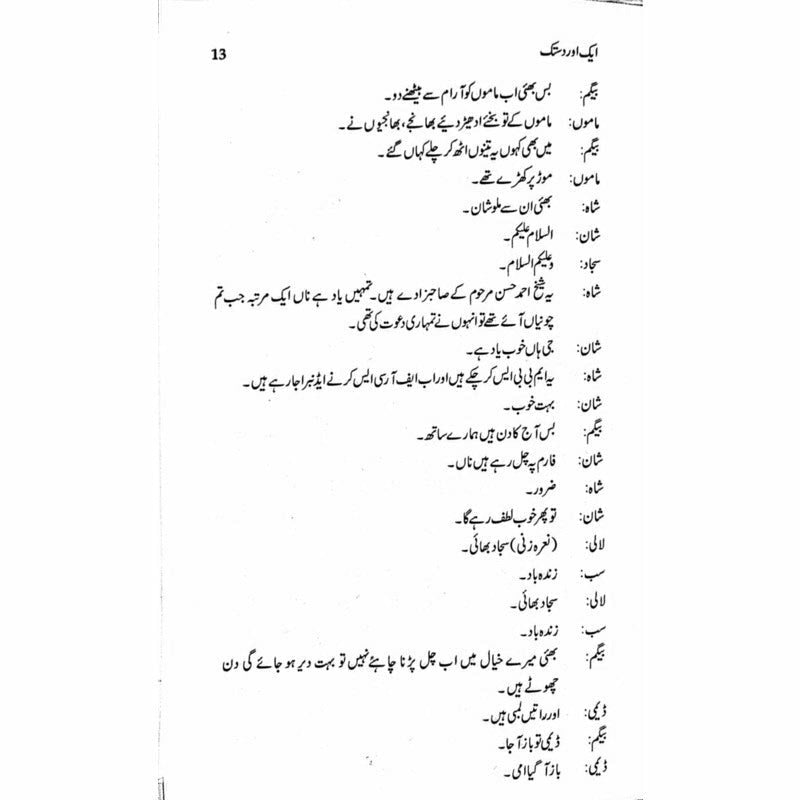 ایک اور دستک 13
بیگم: بس بھئی اب ماموں کو آرام سے بیٹھنے دو۔
ماموں: ماموں کے تو بخئے ادھیڑ دئیے بھانجے، بھانجیوں نے۔
بیگم: میں بھی کہوں یہ تینوں اٹھ کر چلے کہاں گئے۔
ماموں: موڑ پر کھڑے تھے۔
شاہ: بھئی ان سے ملو شان۔
شان: السلام علیکم۔
سجاد: وعلیکم السلام۔
شاہ: یہ شیخ احمد حسن مرحوم کے صاحبزادے ہیں۔ تمہیں یاد ہے ناں ایک مرتبہ جب تم
چونیاں آئے تھے تو انہوں نے تمہاری دعوت کی تھی۔
شان: جی ہاں خوب یاد ہے۔
شاہ: یہ ایم بی بی ایس کر چکے ہیں اور اب ایف آر سی ایس کرنے ایڈنبرا جا رہے ہیں۔
شان: بہت خوب۔
بیگم: بس آج کا دن ہیں ہمارے ساتھ۔
شان: فارم پہ چل رہے ہیں ناں۔
شاہ: ضرور۔
شان: تو پھر خوب لطف رہے گا۔
لالی: (نعرہ زنی) سجاد بھائی۔
سب: زندہ باد۔
لالی: سجاد بھائی۔
سب: زندہ باد۔
بیگم: بھئی میرے خیال میں اب چل پڑنا چاہئے نہیں تو بہت دیر ہو جائے گی دن
چھوٹے ہیں۔
ڈیمی: اور راتیں لمبی ہیں۔
بیگم: ڈیمی تو باز آ جا۔
ڈیمی: باز آ گیا امی۔